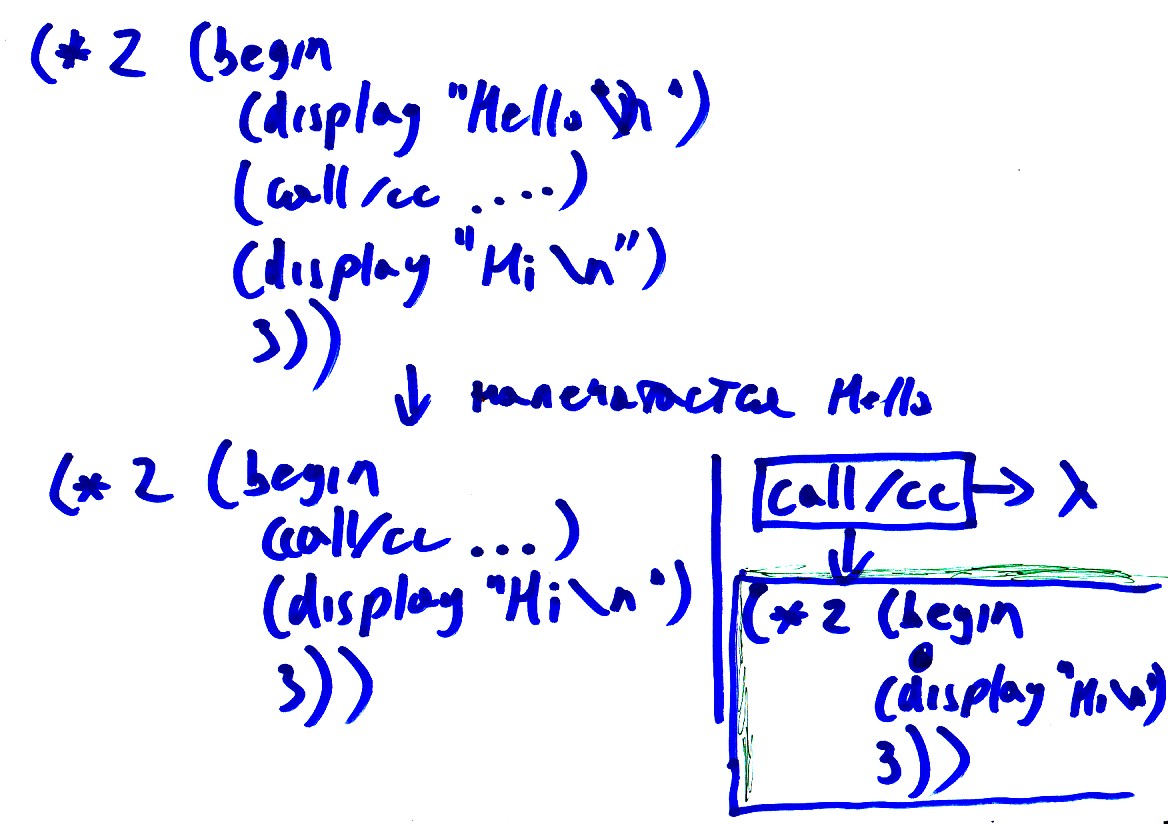 (* 2 (begin
(display "Hello \n")
(call/cc ....)
(display "Hi \n")
3))
↓ напечатается Hello
(* 2 (begin
(call/cc ...)
(display "Hi \n")
3))
call/cc → λ
(* 2 (begin
(display "Hi \n")
3))